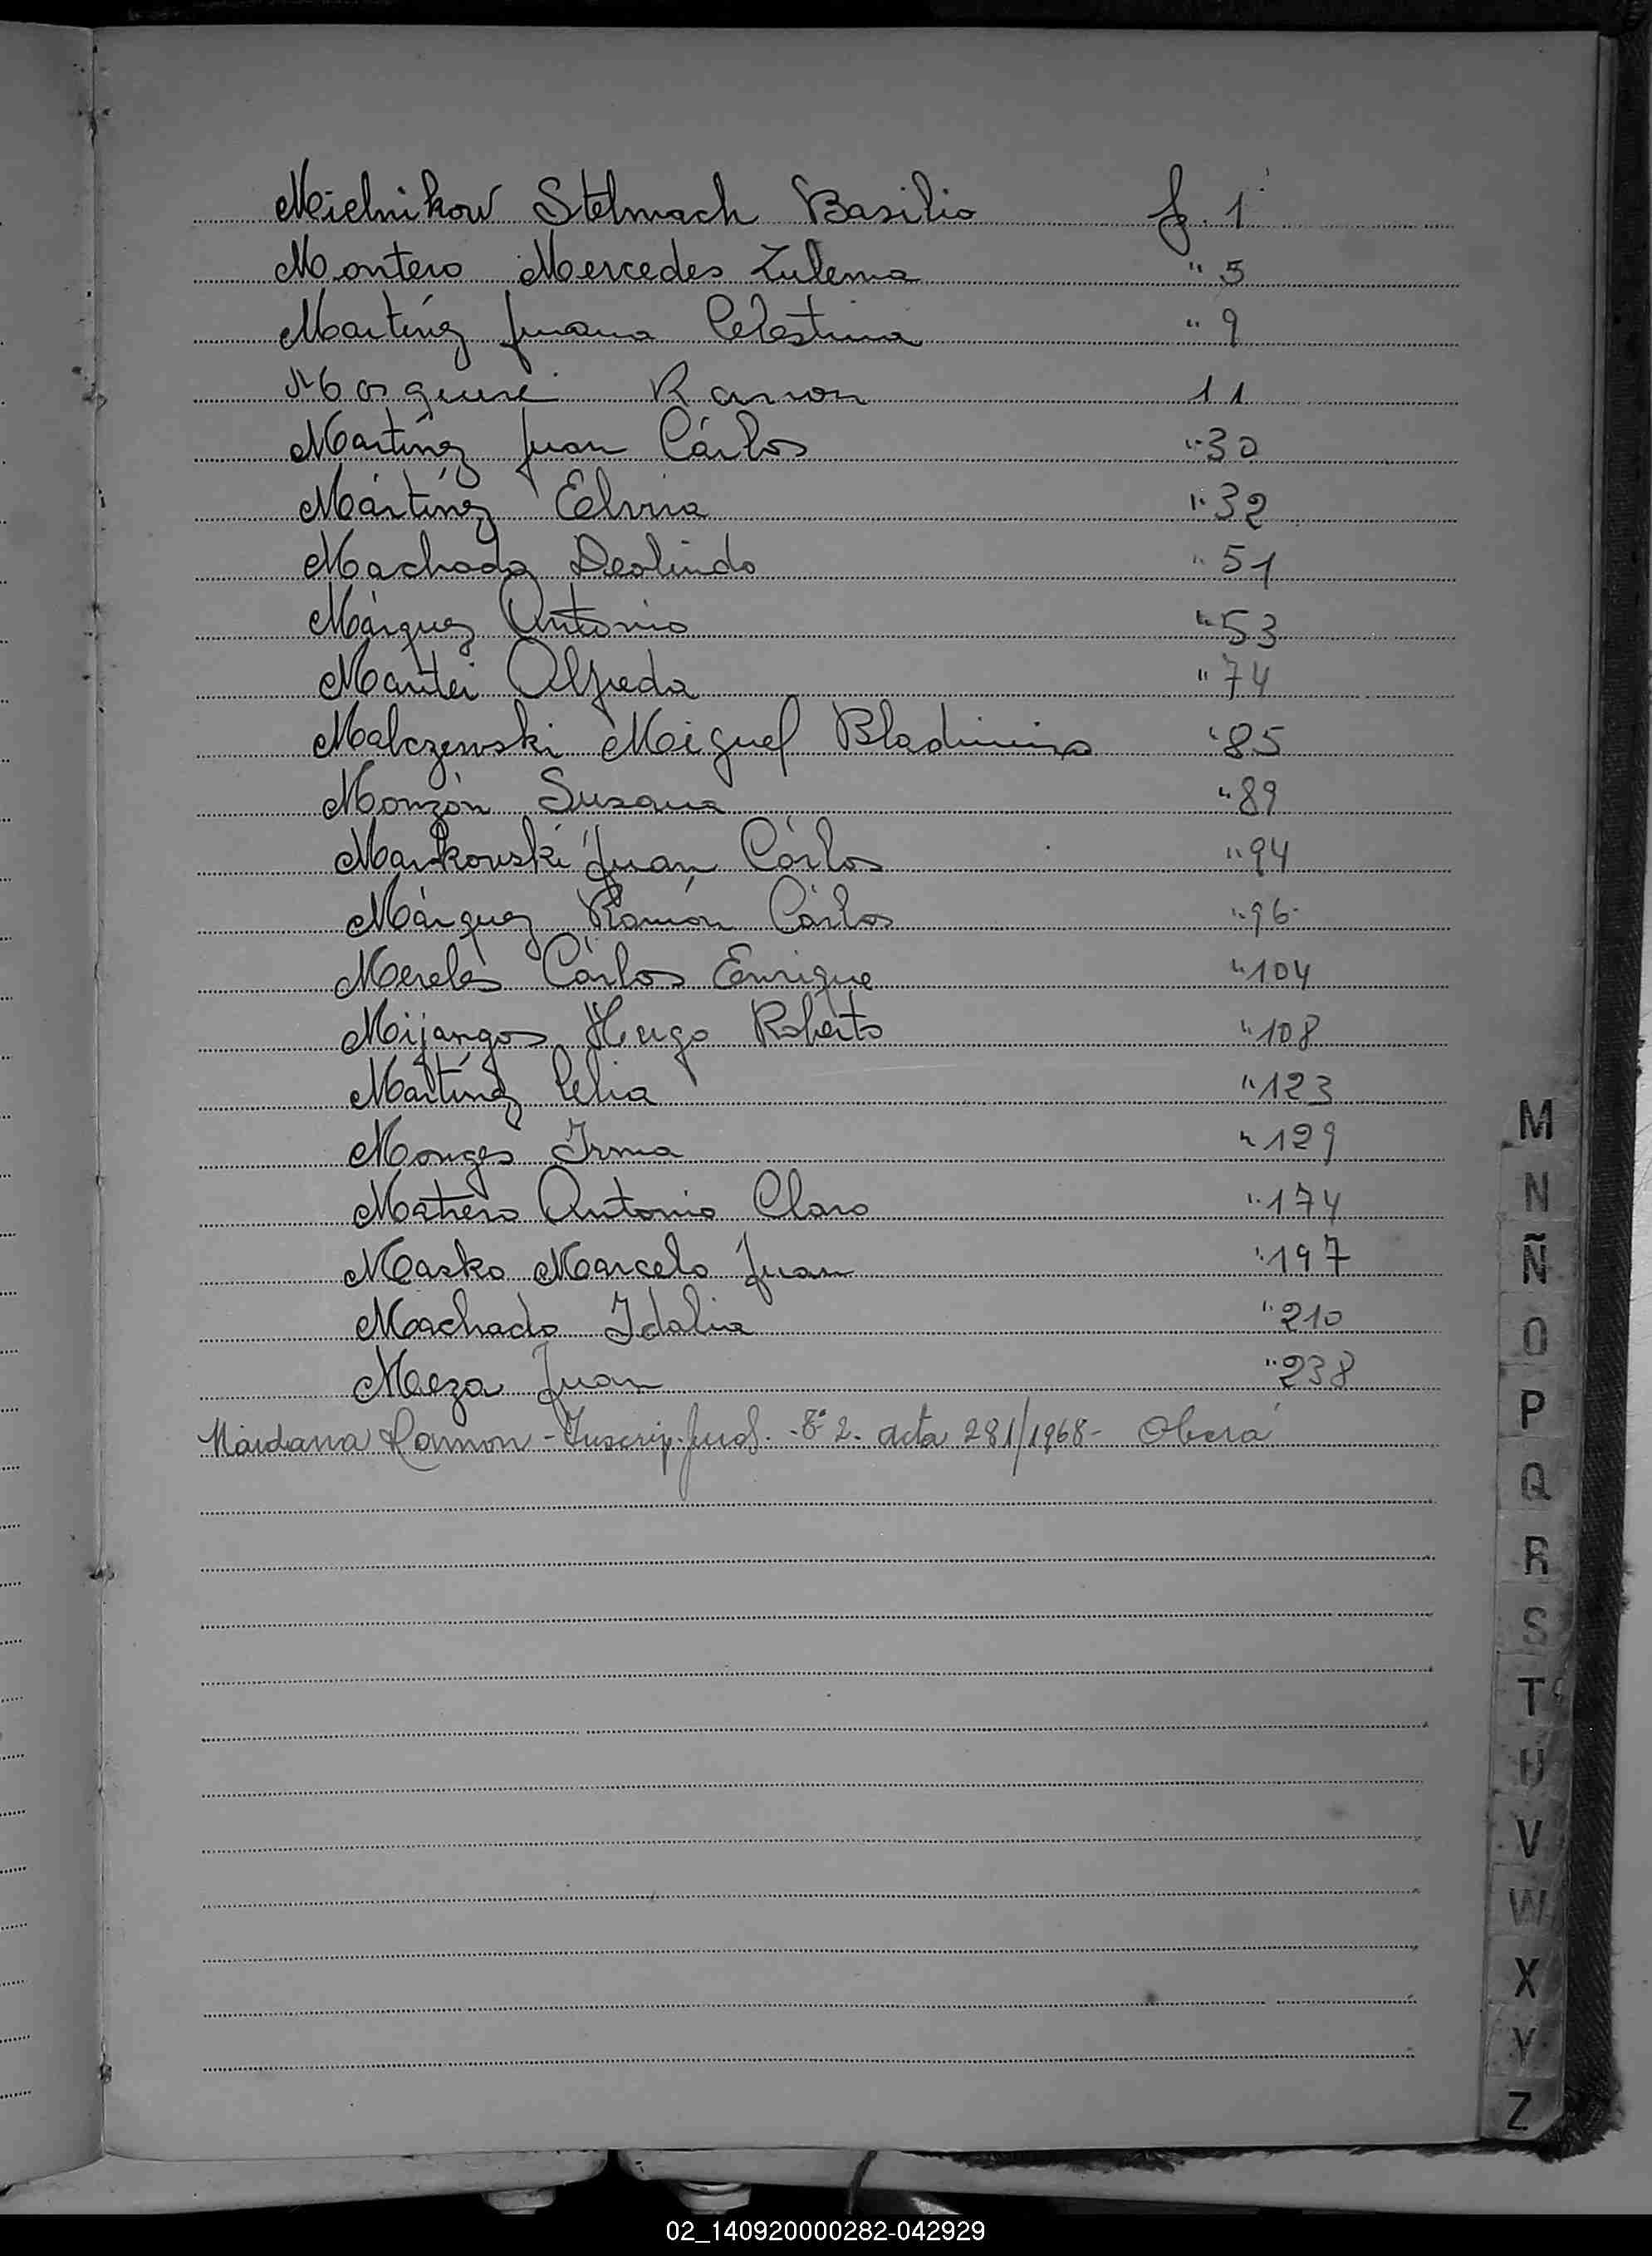 Mielnikow Stelmach Basilio f. 1
Montero Mercedes Zulema " 5
Martínez Juana Celestina " 9
Ramon 11
Martínez Juan Cárlos " 30
Mártínez Elvira " 32
Machado Deolindo " 51
Márquez Antonio " 53
Mantei Alfreda " 74
Malczewski Miguel Bladimiro " 85
Monzón Susana " 89
Markowski Juan Cárlos " 94
Márquez Ramón Cárlos " 96
Mereles Cárlos Enrique " 104
Mijangos Hugo Roberto " 108
Martínez Celia " 123
Monges Irma " 129
Matrero Antonio Claro " 174
Masko Marcelo Juan " 197
Machado Idalia " 210
Meza Juan " 238
Maidana Ramon - Inscrip. Jud. - Tº 2. acta 281/1968 - Oberá
M
N
Ñ
O
P
Q
R
S
T
U
V
W
X
Y
Z
02_140920000282-042929